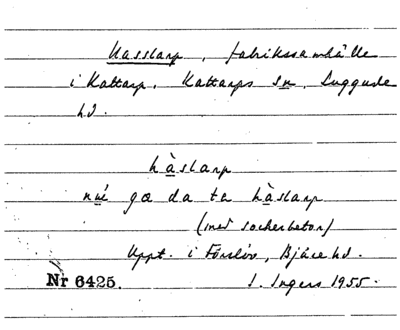 Hasslarp, fabrikssamhälle
i Kattarp, Kattarps sn, Luggude
hd.
hàslarp
gœ da te hàslarp
(med sockerbetor)
Uppt. i Förslöv, Bjäre hd.
Nr 6425. I. Ingers 1955.